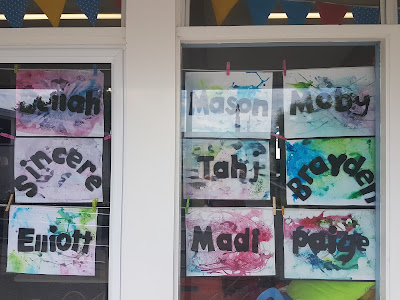 Sincere
Elliott
Mason
Moby
Tahj
Brayden
Madi
paige